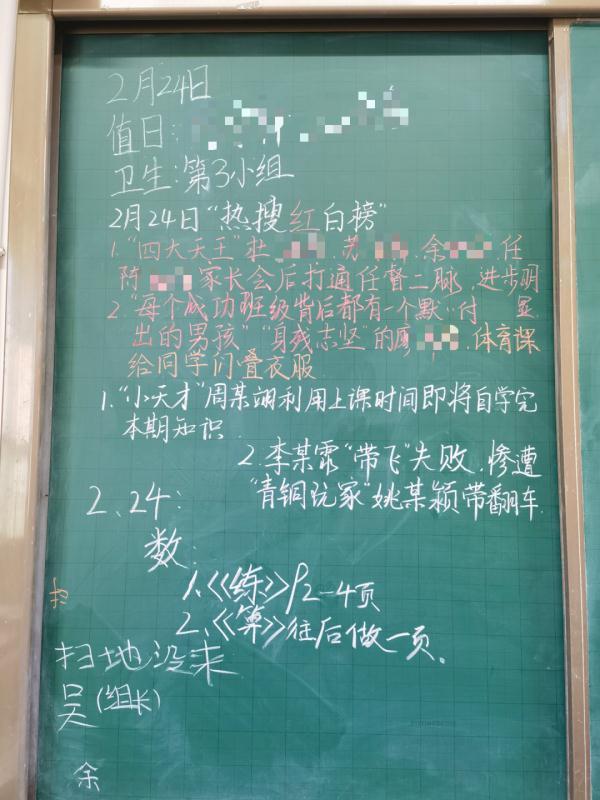 2月24日
值日:
卫生:第3小组
2月24日“热搜红白榜”
1.“四大天王”杜 、苏 、余 、任
陈 家长会后打通任督二脉,进步明
2.“每个成功班级背后都有一个默 付 显
出的男孩”“身残志坚”的 ,体育课
给同学们叠衣服
1.“小天才”周某翊利用上课时间即将自学完
本期知识.
2.李某霖“带飞”失败,惨遭
“青铜玩家”姚某颖带翻车.
2、24:
数:
1、《练》P2-4页
2、《算》往后做一页。
扫
扫地没来
吴(组长)
余